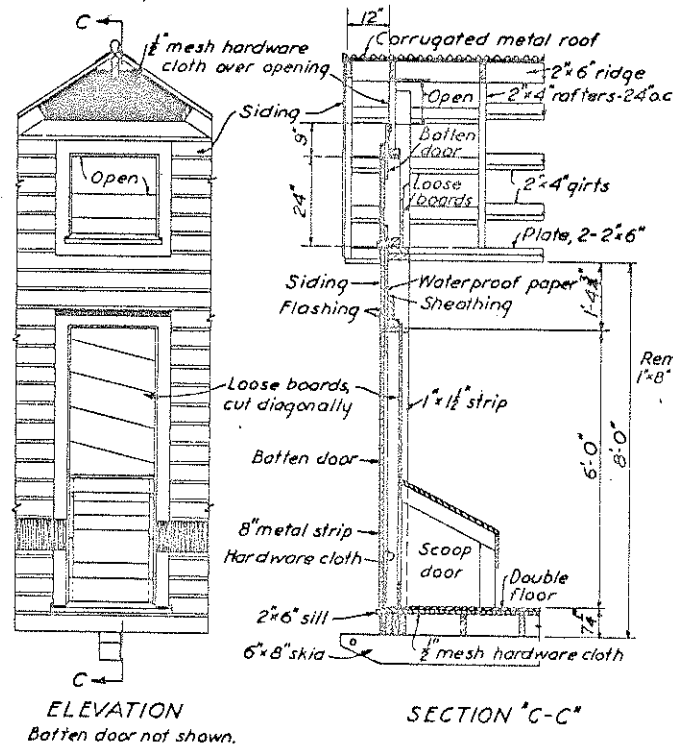 C
½" mesh hardware
cloth over opening
Siding
Open
Loose boards,
cut diagonally
C
ELEVATION
Batten door not shown.
12"
Corrugated metal roof
2"×6" ridge
Open
2"×4" rafters-24"o.c
9"
Batten
door
Loose
boards
24"
2"×4" girts
Plate, 2-2"×6"
Siding
Waterproof paper
Flashing
Sheathing
1'-4¾"
1"×1½" strip
Rem
1"×8"
Batten door
6'-0"
8'-0"
8" metal strip
Hardware cloth
Scoop
door
Double
floor
2"×6" sill
6"×8" skid
½" mesh hardware cloth
SECTION "C-C"